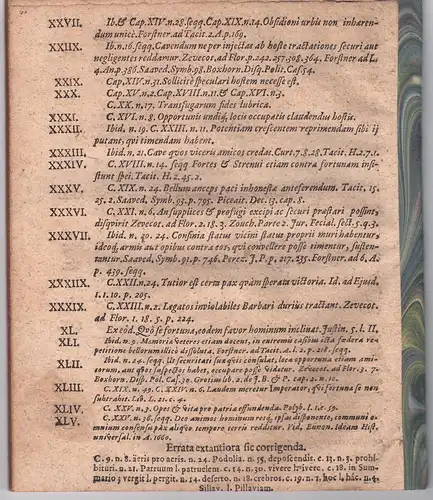 XXVII. Ib.& Cap.XIV.n.28.seqq.Cap.XIX.n.24.Obsidioni urbis non inhæren-
dum unicè. Forstner.ad Tacit.2.A.p.169.
XXIIX. Ib.n.16.seqq.Cavendum ne per injectas ab hoste tractationes securi aut
negligentes reddamur.Zevecot.ad Flor.p.242.257.308.364. Forstner.ad L.
4.An.p.386.Saaved.Symb.98.Boxhorn.Disq.Polit.Cas.54.
XXIX. Cap.XIV.n.31.Sollicitè speculari hostem necesse est.
XXX. Cap.XV.n.2.Cap.XVIII.n.11.& Cap.XVI.n.3.
C.XX.n.17. Transfugarum fides lubrica.
XXXI. C.XVI.n.8. Opportuni undiq; locis occupatis claudendus hostis.
XXXII. Ibid. n.19. C.XXIII.n.11. Potentiam crescentem reprimendam sibi ij
putant, qui timendam habent.
XXXIII. Ibid.n.21.Cave quos viceris amicos credas.Curt.7.8.28.Tacit.H.2.7.1.
XXXIV. C.XVIII.n.14. seqq Fortes & Strenui etiam contra fortunam insi-
stunt spei.Tacit.H.2.45.2.
XXXV. C.XIX.n.24. Bellum anceps paci inhonestæ anteferendum. Tacit.15.
25.2.Saaved. Symb.93.795. Piceait. Dec.13.cap.8.
XXXVI. C.XXI.n.6. An supplices & profugi excipi ac securi præstari possint,
disqvirit Zevecot. ad Flor.2.18.3. Zouch.Parte 2. Jur. Fecial.sect.5.q.31.
XXXVII. Ibid. n. 20. 24. Confinia status vicini status proprii muri habentur,
ideoq; armis aut opibus contra eos, qui convellere posse timentur, susten-
tantur.Saaved. Symb.91.p.746. Perez.J.P.p.217.235.Forstner.ad 6.A.
p. 439. seqq.
XXXIIX. C.XXII.n.24. Tutior est certa pax quàm sperata victoria. Id. ad Ejusd.
1.1.10.p.265.
XXXIX. C.XXIII.n.2. Legatos inviolabiles Barbari duriùs tractant. Zevecot.
ad Flor. 1. 18. 5. p. 224.
XL. Ex eod. Quò se fortuna, eodem favor hominum inclinat. Justin. 5. l. 11.
XLI. Ibid.n.9. Memoria veteres etiam docent, in extremis casibus icta fœdera re-
petitione bellorum illicò dissoluta. Forstner.ad Tacit.A.l.2.p.218.seqq.
XLII. Ibid.n.24.seqq. Ut securitati suæ quis consulat, loca opportuna etiam ami-
corum, aut quos suspectos habet, occupare posse videtur. Zevecot.ad Flor.3.7.
Boxhorn.Disq.Pol.Cas.30. Grotius lib.2.de J.B.& P. cap.2.n.10.
XLIII. C.XIX.n.49. C.XXIV.n.6. Laudem meretur Imperator, qui fortunæ se non
subtrabit. Lib. L. 21. c. 4.
XLIV. C.XXV.n.3. Opes & vita pro patria effundenda. Polyb. l.1.c.59.
XLV. C.XXV.n.36. seqq. Deo animos hominum resq; ipsas disponente, communi o-
mnium consensu pax aliquo tempore terris redditur. Vid. Eunon. Ideam Hist.
universal. in A.1660.
Errata extantiora sic corrigenda.
C. 9. n. 8. äeris pro acris. n. 24. Podolia. n. 55. deposcendis. c. 13. n. 3. prohi-
bituri. n. 21. Patruum l. patruelem. c. 14. n. 30. vivere l. vivere. c. 18. in Sum-
mario; vergit l. pergit. n. 14. deserto. n. 18. crebros. c. 19. n. 1. hoc l. hâc. n. 4.
Sillav. l. Pillaviam.